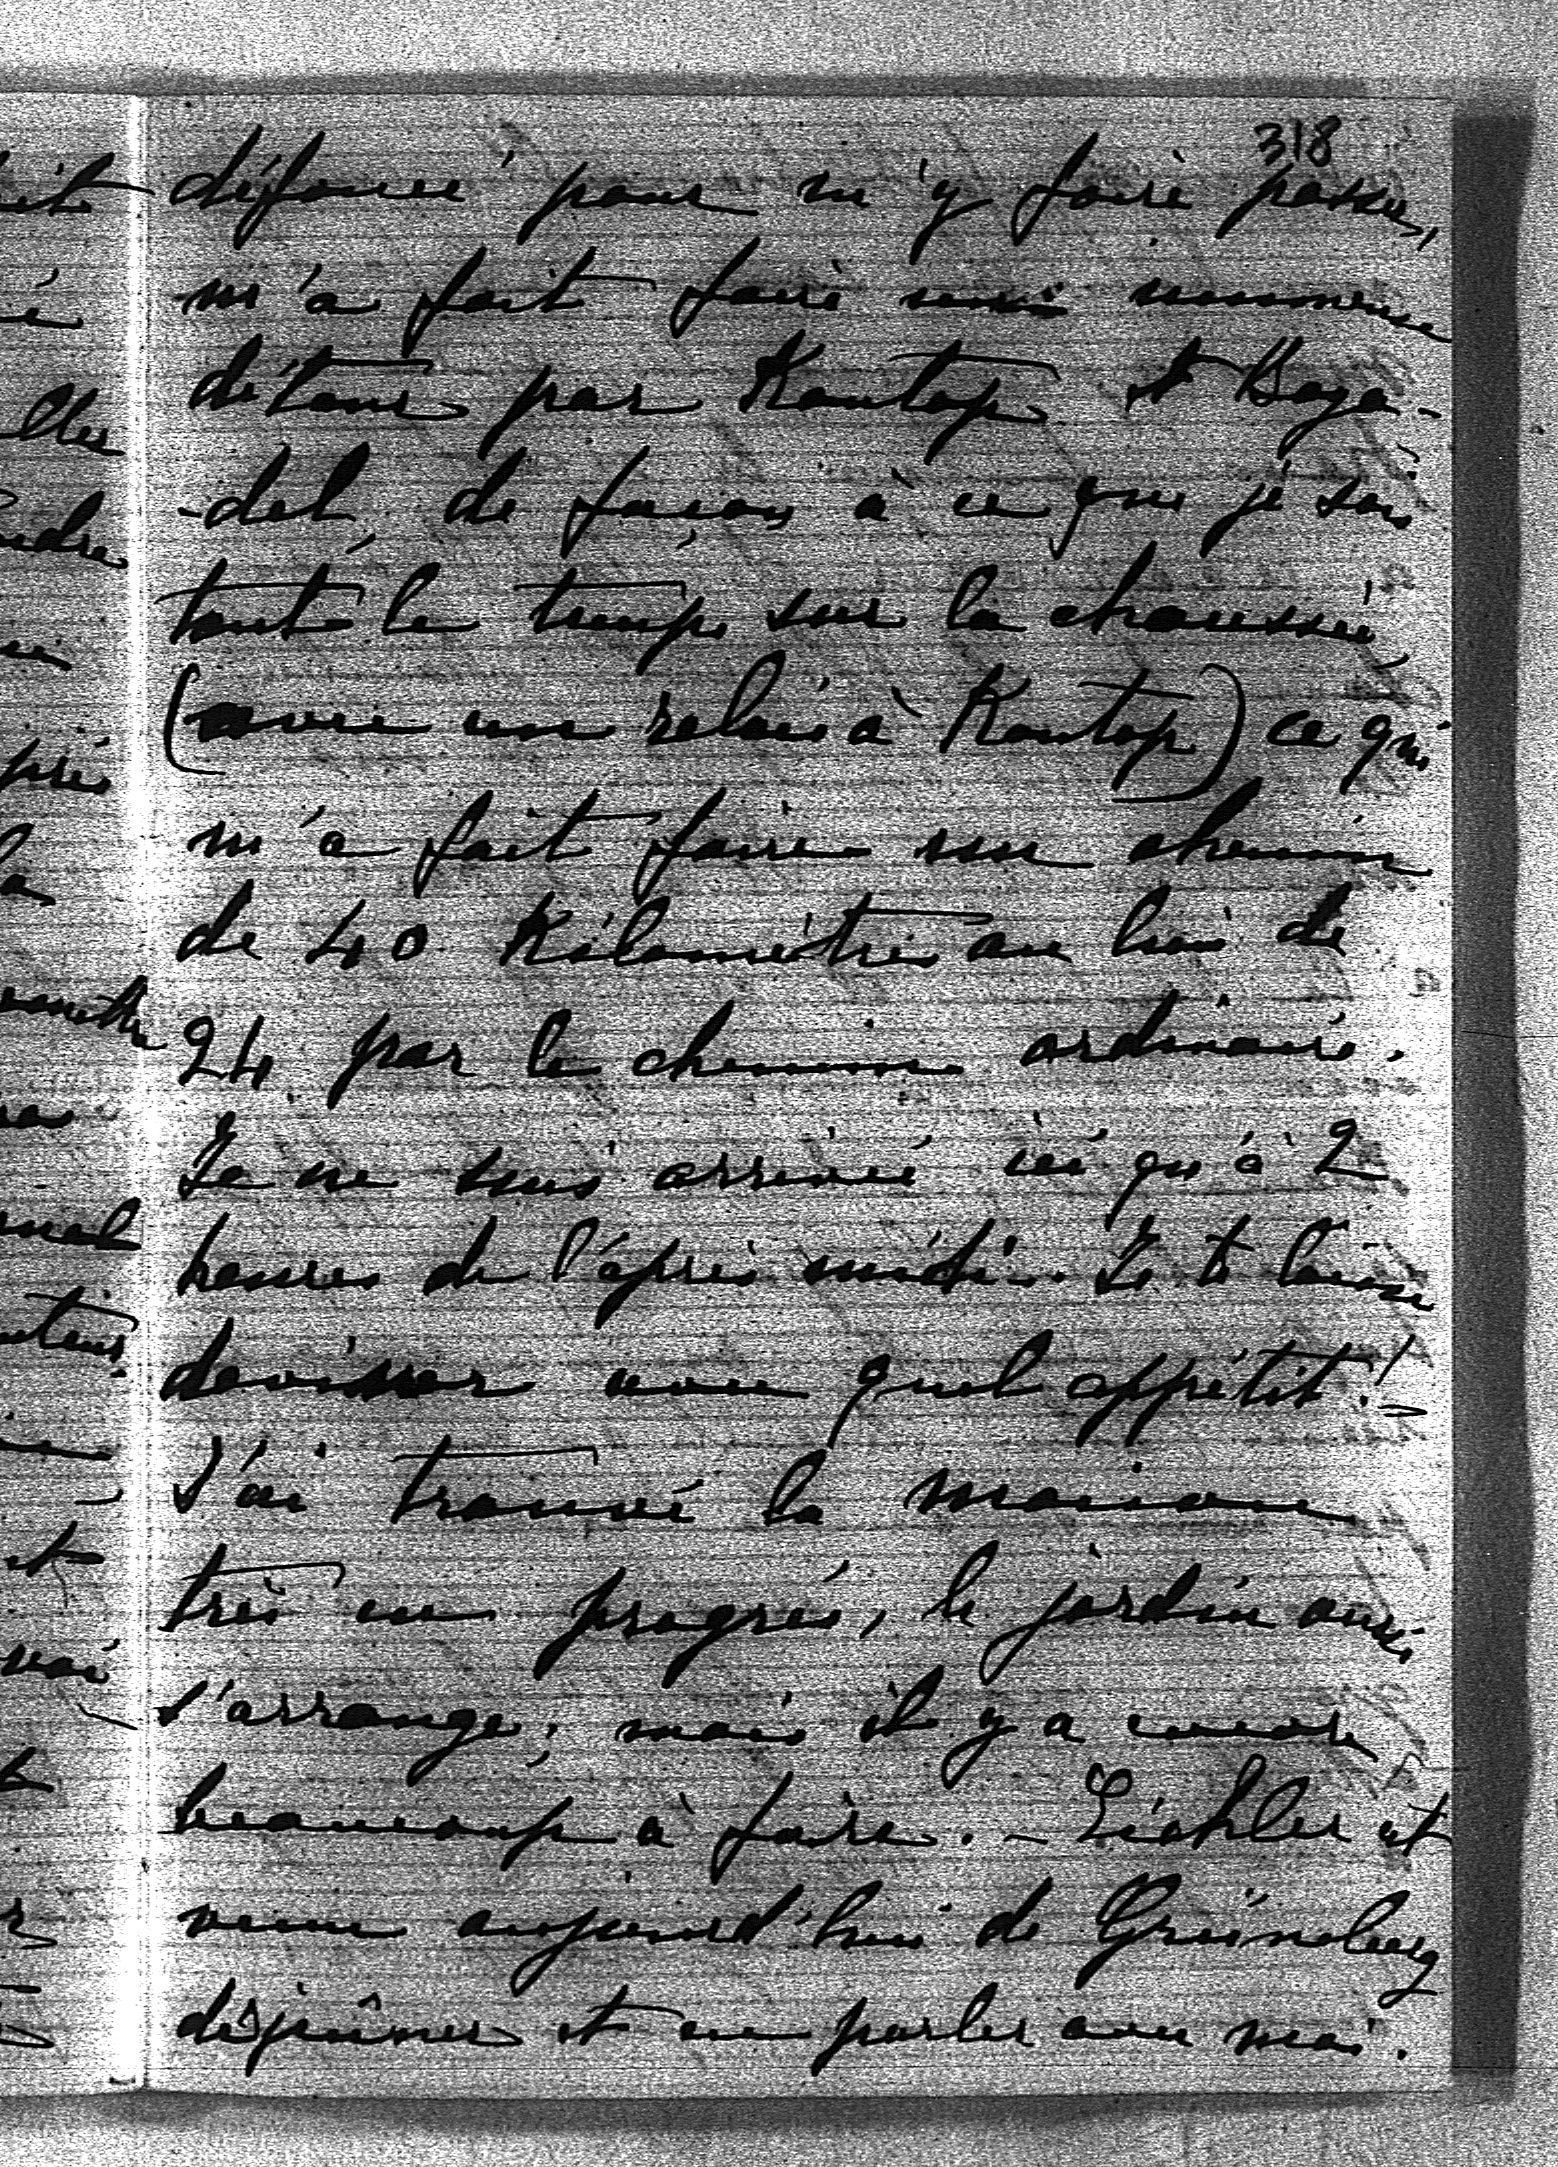 318
défoncé pour m'y faire passer,
m'a fait faire un immense
détour par Kontop et Boya-
-del, de façon à ce que je sois
tout le temps sur la chaussée
(avec un relais à Kontop) ce qui
m'a fait faire un chemin
de 40 Kilomètres au lieu de
24 par le chemin ordinaire.
Je ne suis arrivé ici qu'à 2
heures de l'après midi. Je te laisse
deviner avec quel appétit! -
J'ai trouvé la maison
très en progrès, le jardin aussi
s'arrange; mais il y a encore
beaucoup à faire. - Eichler est
venu aujourd'hui de Grünberg
déjeûner et en parler avec moi.